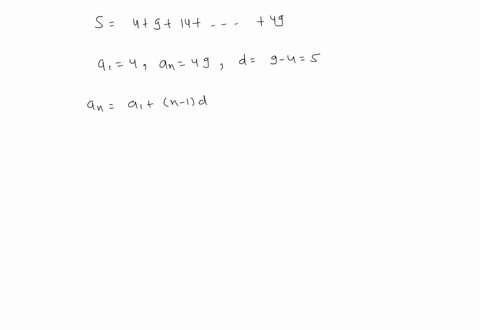 S = 4 + 9 + 14 + - - - - + 49
a₁ = 4, aₙ = 49, d = 9 - 4 = 5
aₙ = a₁ + (n-1)d